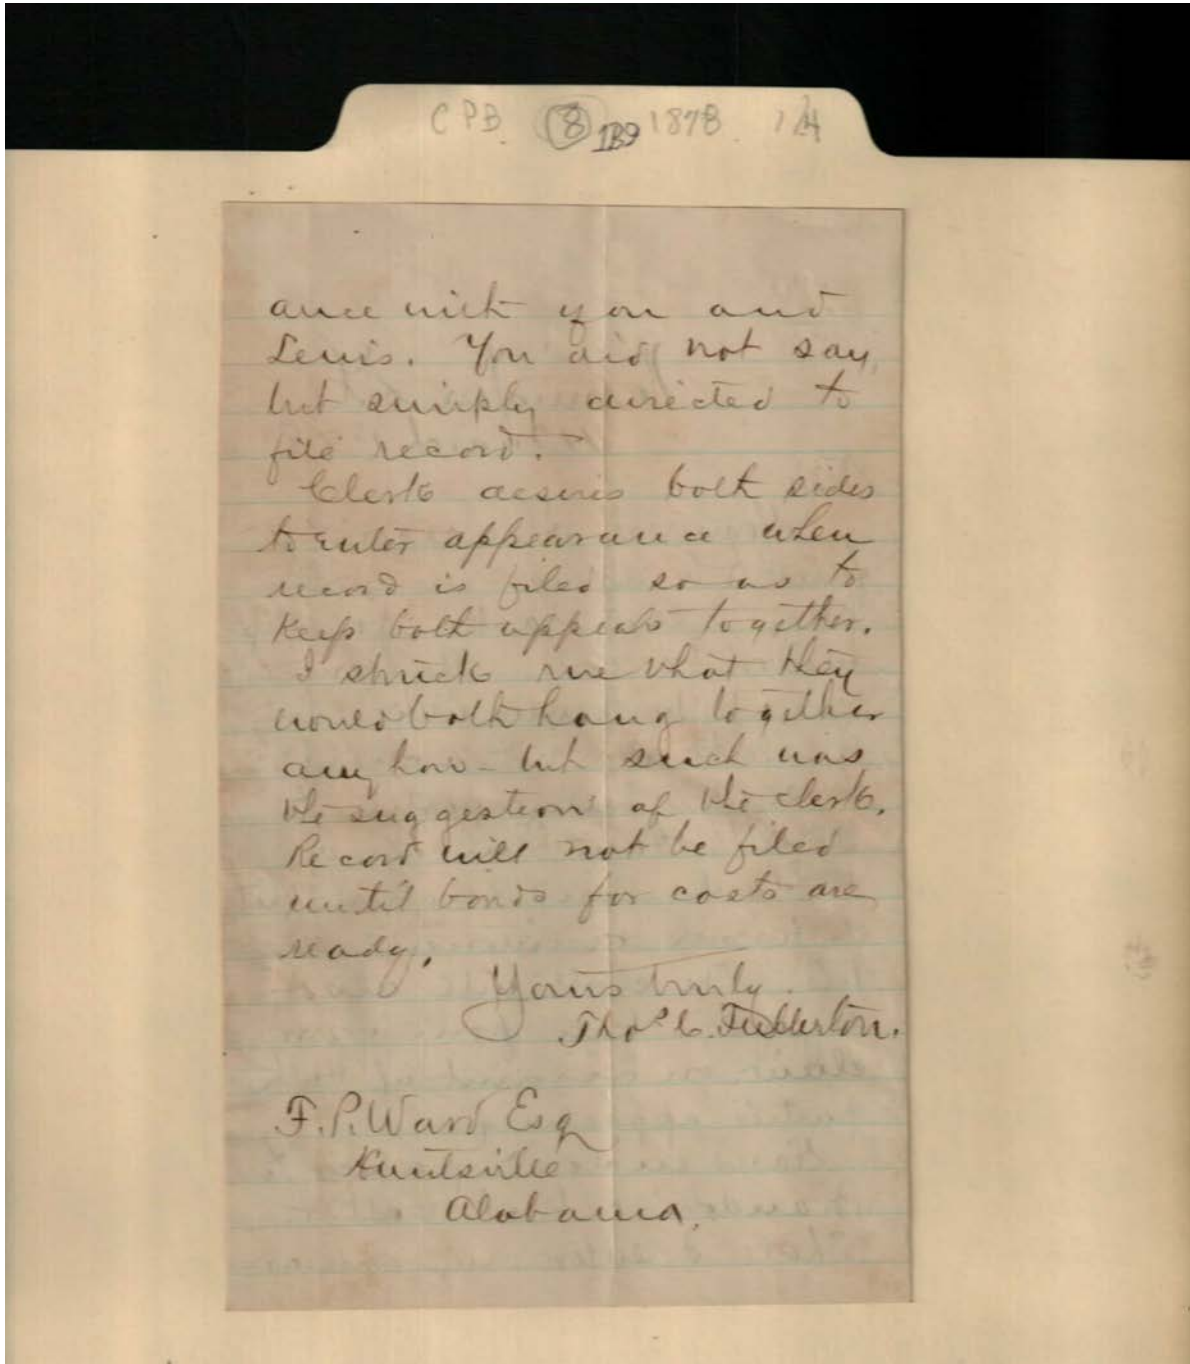 CPB 8 1B9 1878
ance with you and
Lewis. You did not say,
but simply directed to
file record.
Clerk desires both sides
to enter appearance when
record is filed so as to
keep both appeals together.
I struck me that they
would both hang together
any how - but such was
the suggestion of the clerk.
Record will not be filed
until bonds for costs are
ready.
Yours truly.
Thos C. Fullerton.
F. P. Ward Esq
Huntsville
Alabama.